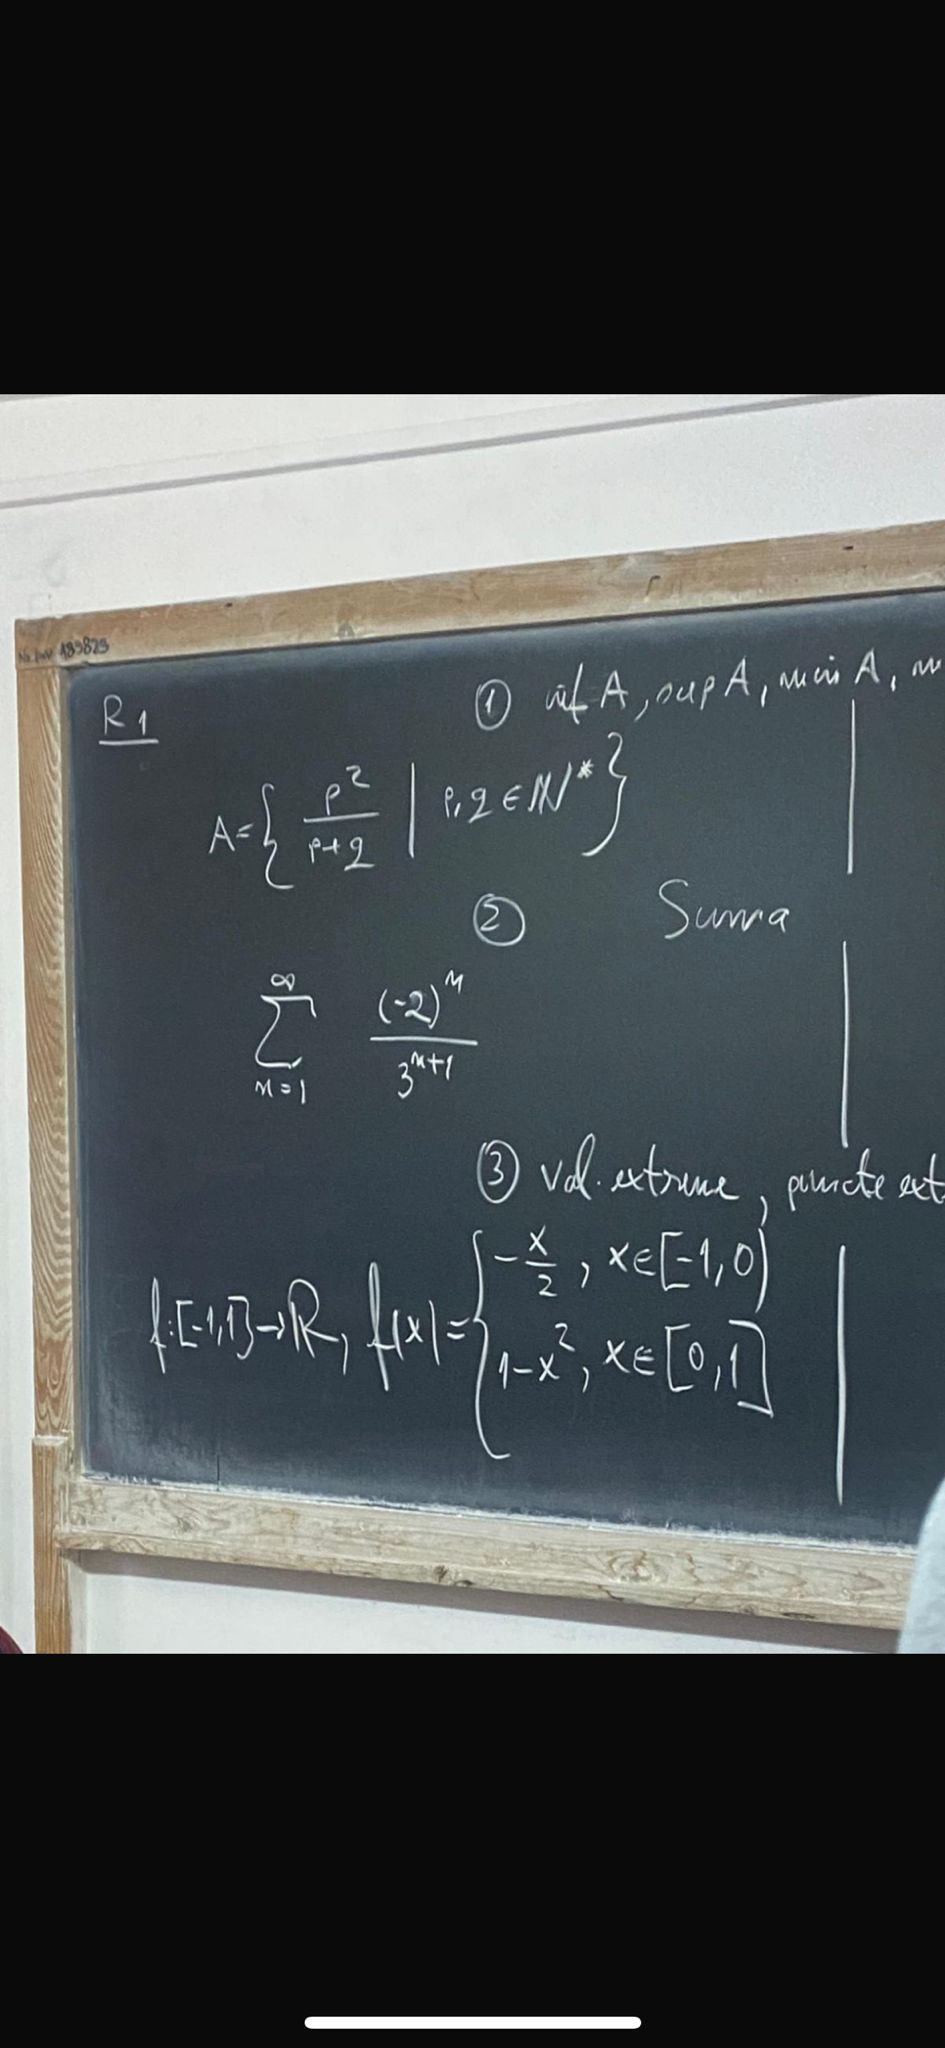 189823
R1
① inf A, sup A, min A, m
A = { p²/(p+q) | p,q ∈ ℕ* }
② Suma
∑_{n=1}^{∞} (-2)^n / 3^{n+1}
③ val. extreme, puncte ext
f:[-1,1]→ℝ, f(x) = { -x/2, x∈[-1,0)
1-x², x∈[0,1]